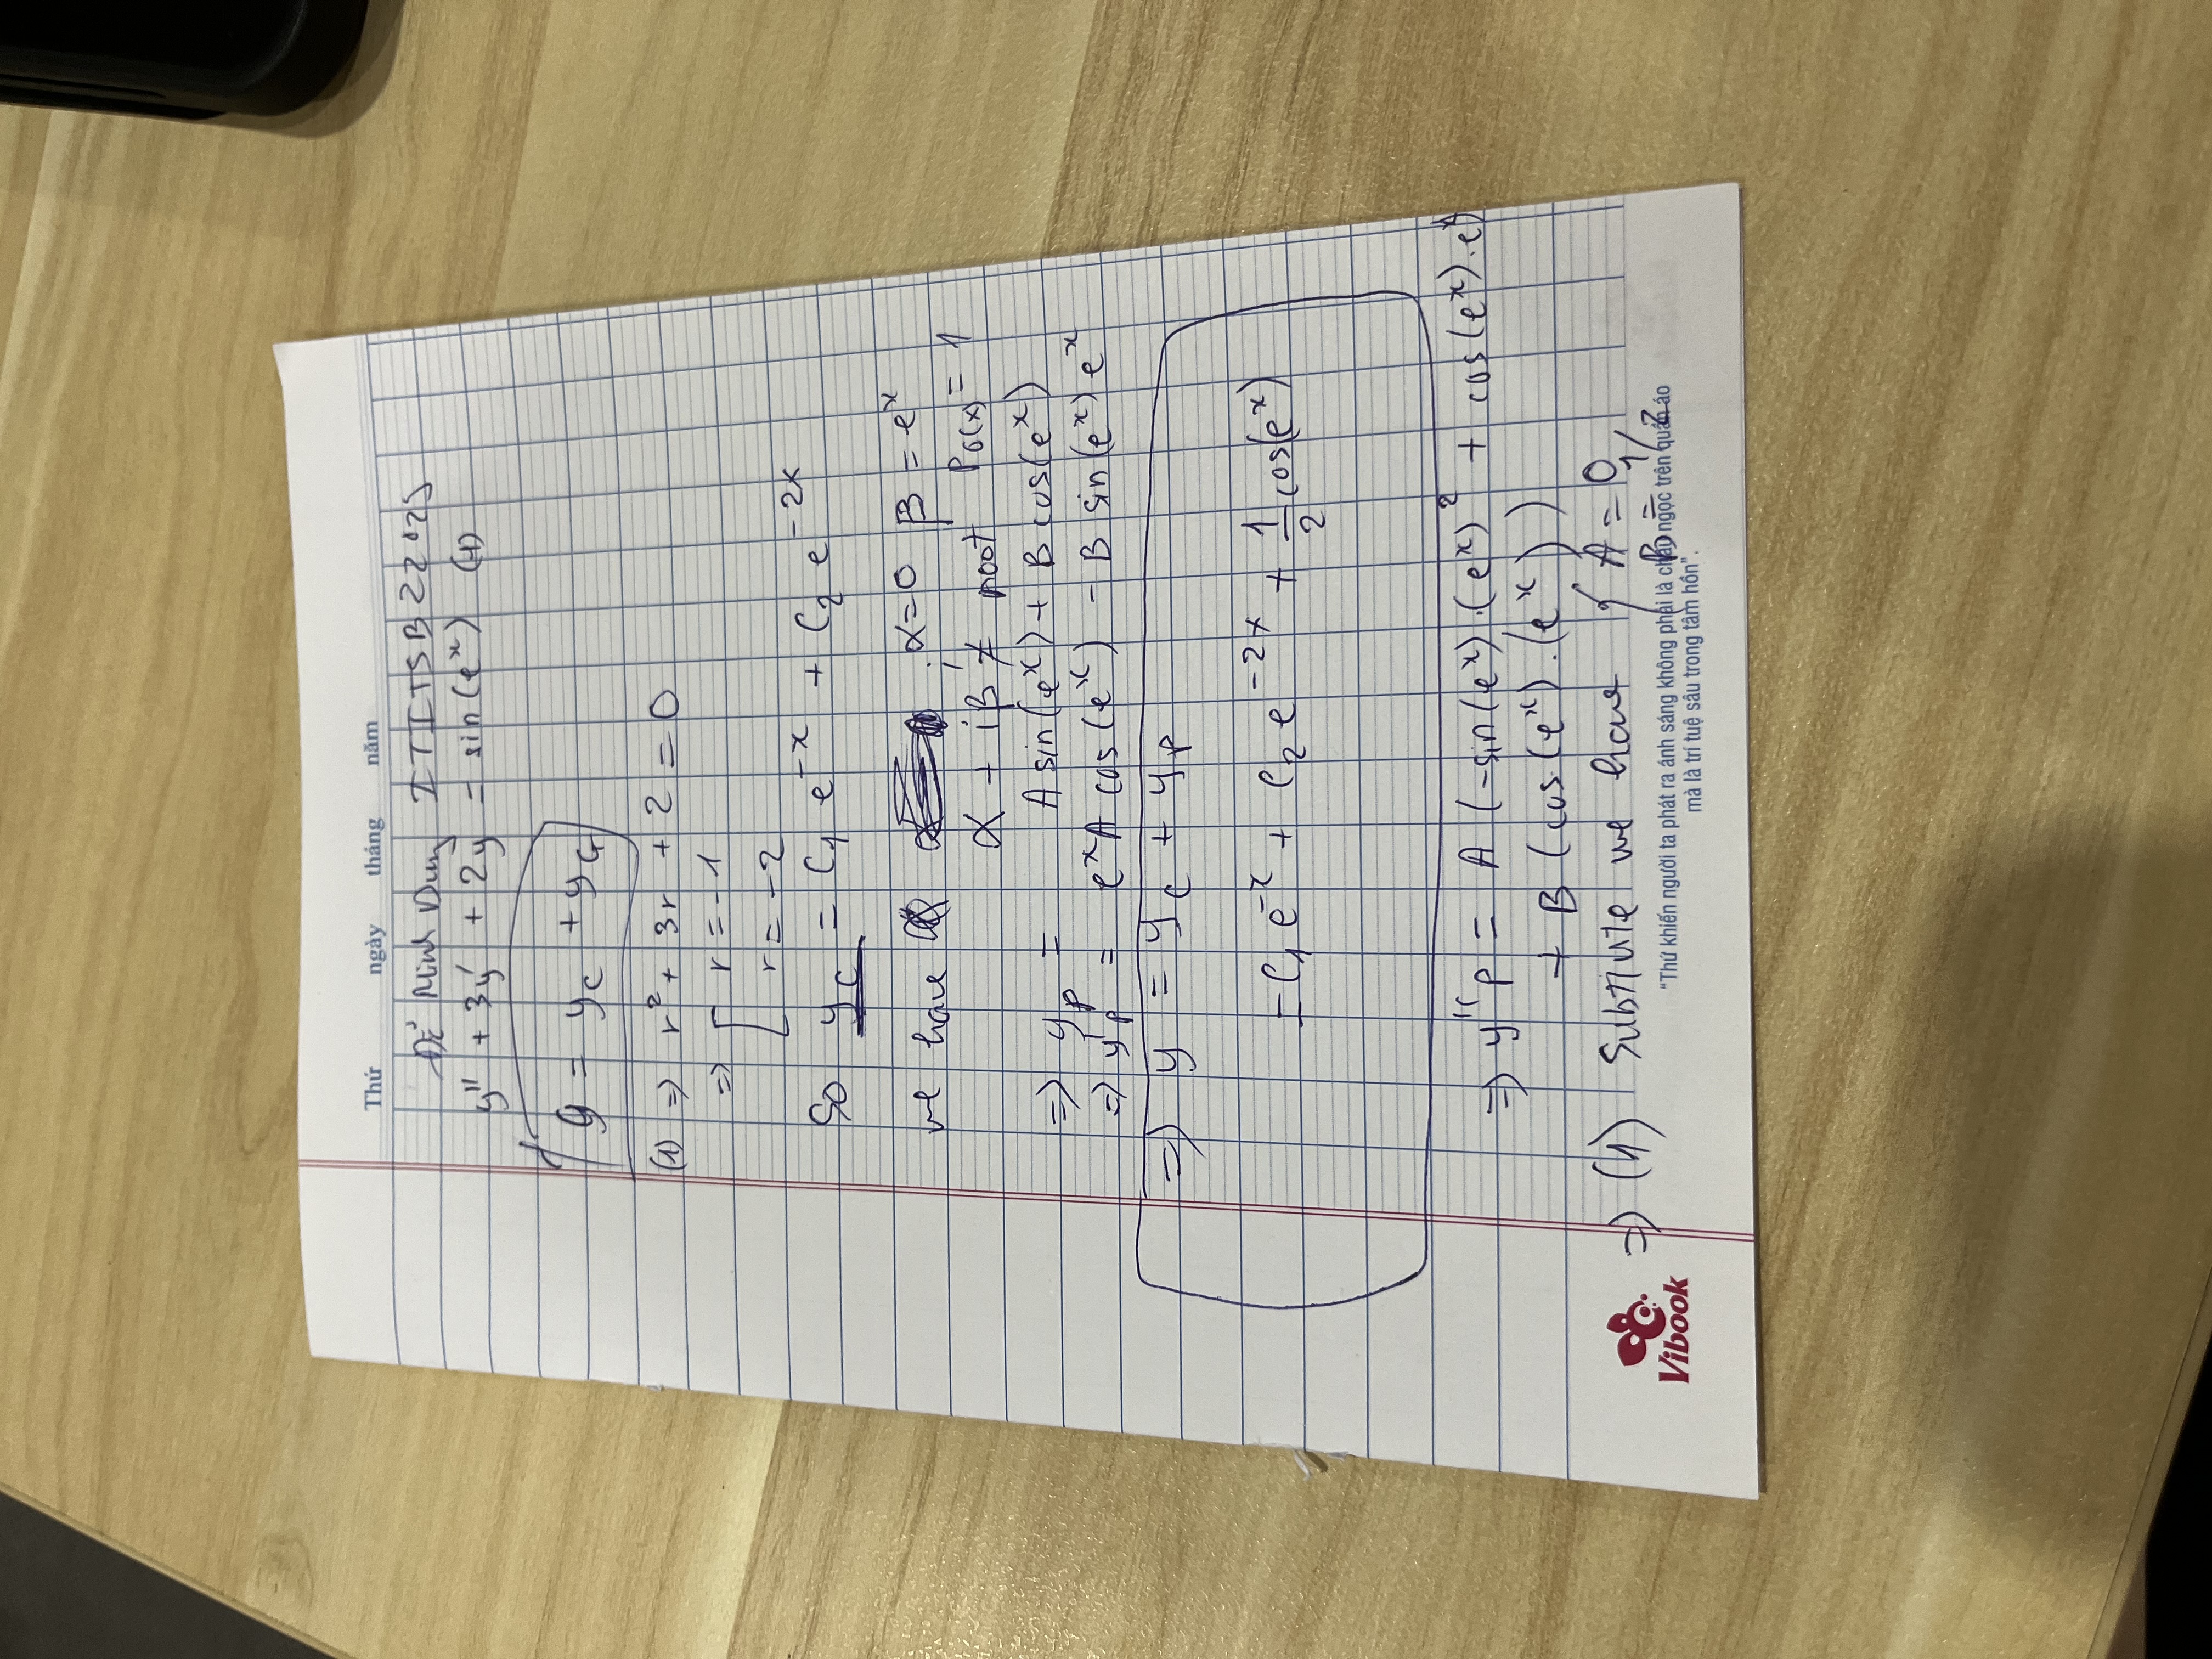 Thứ ngày tháng năm
Minh Dung ITITSB22025
y'' + 3y' + 2y = sin(e^x) (1)
y = y_c + y_G
(1) => r² + 3r + 2 = 0
=> [ r = -1
r = -2
So y_c = C₁ e^{-x} + C₂ e^{-2x}
we have ; α = 0 β = e^x
α + iβ ≠ root P₀(x) = 1
=> y_p = A sin(e^x) + B cos(e^x)
=> y'_p = e^x A cos(e^x) - B sin(e^x) e^x
=> y = y_c + y_p
= C₁ e^{-x} + C₂ e^{-2x} + 1/2 cos(e^x)
=> y''p = A (-sin(e^x) . (e^x)² + cos(e^x) . e^x)
+ B (cos(e^x) . (e^x))
=> (1) Substitute we have { A = 0
B = 1/2
Vibook
"Thứ khiến người ta phát ra ánh sáng không phải là châu ngọc trên quần áo
mà là trí tuệ sâu trong tâm hồn".